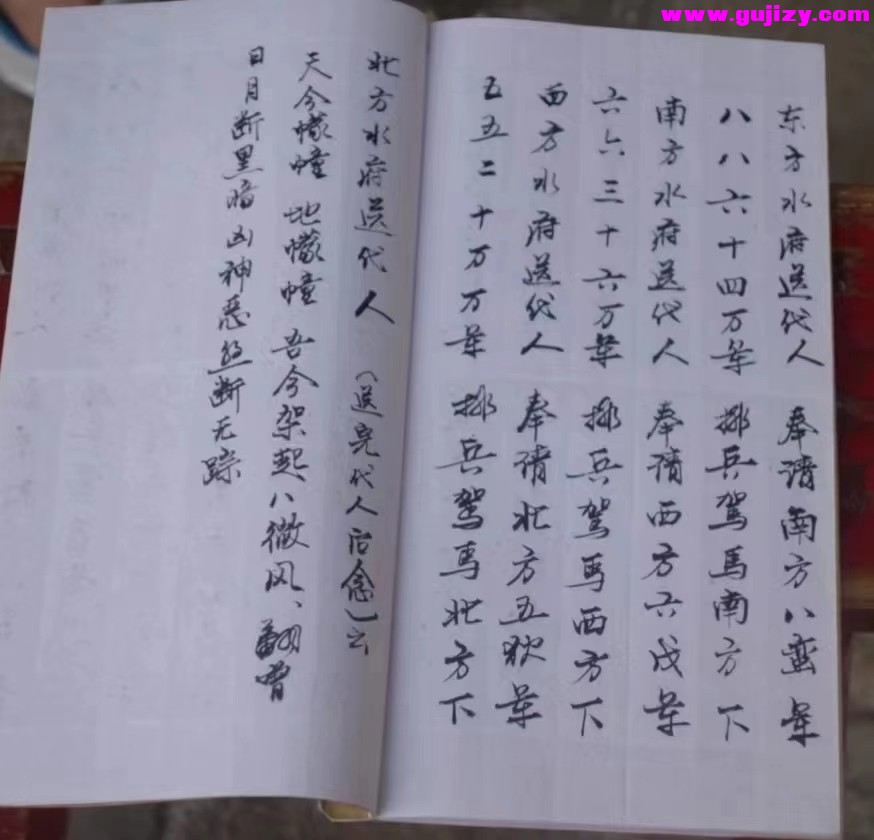 www.gujizy.com
东方水府送代人 奉请南方八蛮军
八八六十四万军 挪兵驾马南方下
南方水府送代人 奉请西方六戊军
六六三十六万军 挪兵驾马西方下
西方水府送代人 奉请北方五狄军
五五二十万万军 挪兵驾马北方下
北方水府送代人 (送完代人后念)云
天今幪幢 地幪幢 吾今架起八微风、翻
日月断黑暗 凶神恶 断无踪